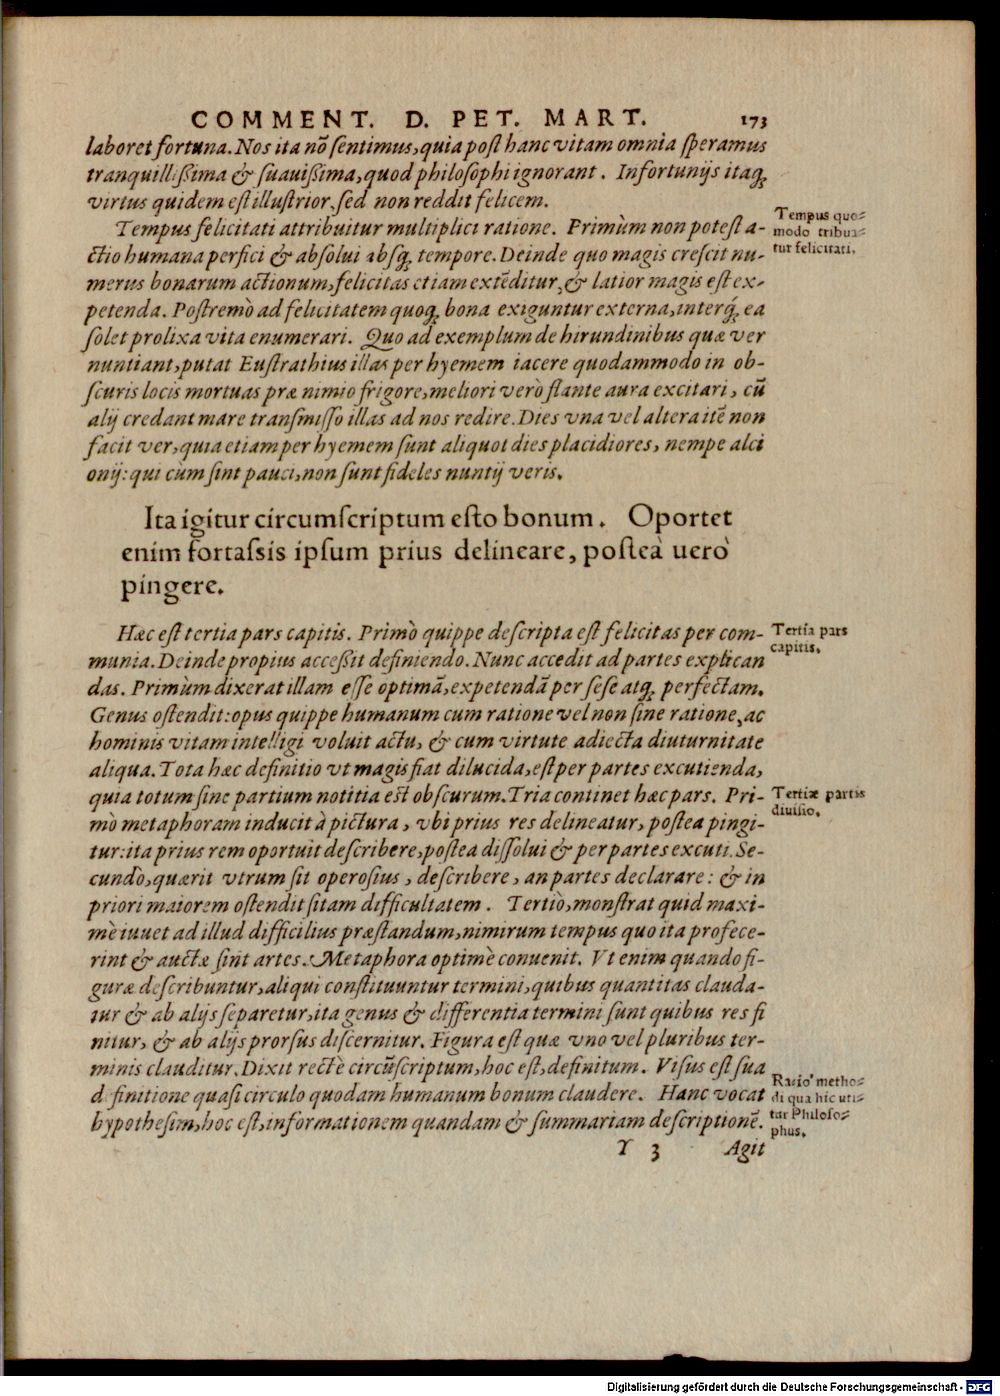 COMMENT. D. PET. MART. 173
laboret fortuna. Nos ita nõ sentimus, quia post hanc vitam omnia speramus
tranquillißima & suauißima, quod philosophi ignorant. Infortunijs itaq;
virtus quidem est illustrior, sed non reddit felicem.
Tempus felicitati attribuitur multiplici ratione. Primùm non potest a-
ctio humana perfici & absolui absq; tempore. Deinde quo magis crescit nu-
merus bonarum actionum, felicitas etiam extẽditur, & latior magis est ex-
petenda. Postremò ad felicitatem quoq; bona exiguntur externa, interq́; ea
solet prolixa vita enumerari. Quo ad exemplum de hirundinibus quæ ver
nuntiant, putat Eustrathius illas per hyemem iacere quodammodo in ob-
scuris locis mortuas præ nimio frigore, meliori verò flante aura excitari, cũ
alij credant mare transmisso illas ad nos redire. Dies vna vel altera itẽ non
facit ver, quia etiam per hyemem sunt aliquot dies placidiores, nempe alci
onij: qui cum sint pauci, non sunt fideles nuntij veris.
Tempus quo-
modo tribua-
tur felicitati.
Ita igitur circumscriptum esto bonum. Oportet
enim fortassis ipsum prius delineare, posteà uerò
pingere.
Hæc est tertia pars capitis. Primò quippe descripta est felicitas per com-
munia. Deinde propius acceßit definiendo. Nunc accedit ad partes explican
das. Primùm dixerat illam esse optimã, expetendã per sese atq; perfectam.
Genus ostendit: opus quippe humanum cum ratione vel non sine ratione, ac
hominis vitam intelligi voluit actu, & cum virtute adiecta diuturnitate
aliqua. Tota hæc definitio vt magis fiat dilucida, est per partes excutienda,
quia totum sine partium notitia est obscurum. Tria continet hæc pars. Pri-
mò metaphoram inducit à pictura, vbi prius res delineatur, postea pingi-
tur: ita prius rem oportuit describere, postea dissolui & per partes excuti. Se-
cundò, quærit vtrum sit operosius, describere, an partes declarare: & in
priori maiorem ostendit sitam difficultatem. Tertiò, monstrat quid maxi-
mè iuuet ad illud difficilius præstandum, nimirum tempus quo ita profece-
rint & auctæ sint artes. Metaphora optimè conuenit. Vt enim quando fi-
guræ describuntur, aliqui constituuntur termini, quibus quantitas clauda-
tur & ab alijs separetur, ita genus & differentia termini sunt quibus res fi
nitur, & ab alijs prorsus discernitur. Figura est quæ vno vel pluribus ter-
minis clauditur. Dixit rectè circũscriptum, hoc est, definitum. Visus est sua
d finitione quasi circulo quodam humanum bonum claudere. Hanc vocat
hypothesim, hoc est, informationem quandam & summariam descriptionẽ.
Tertia pars
capitis.
Tertiæ partis
diuisio.
Ratio metho-
di qua hic uti-
tur Philoso-
phus.
Y 3 Agit
Digitalisierung gefördert durch die Deutsche Forschungsgemeinschaft - DFG